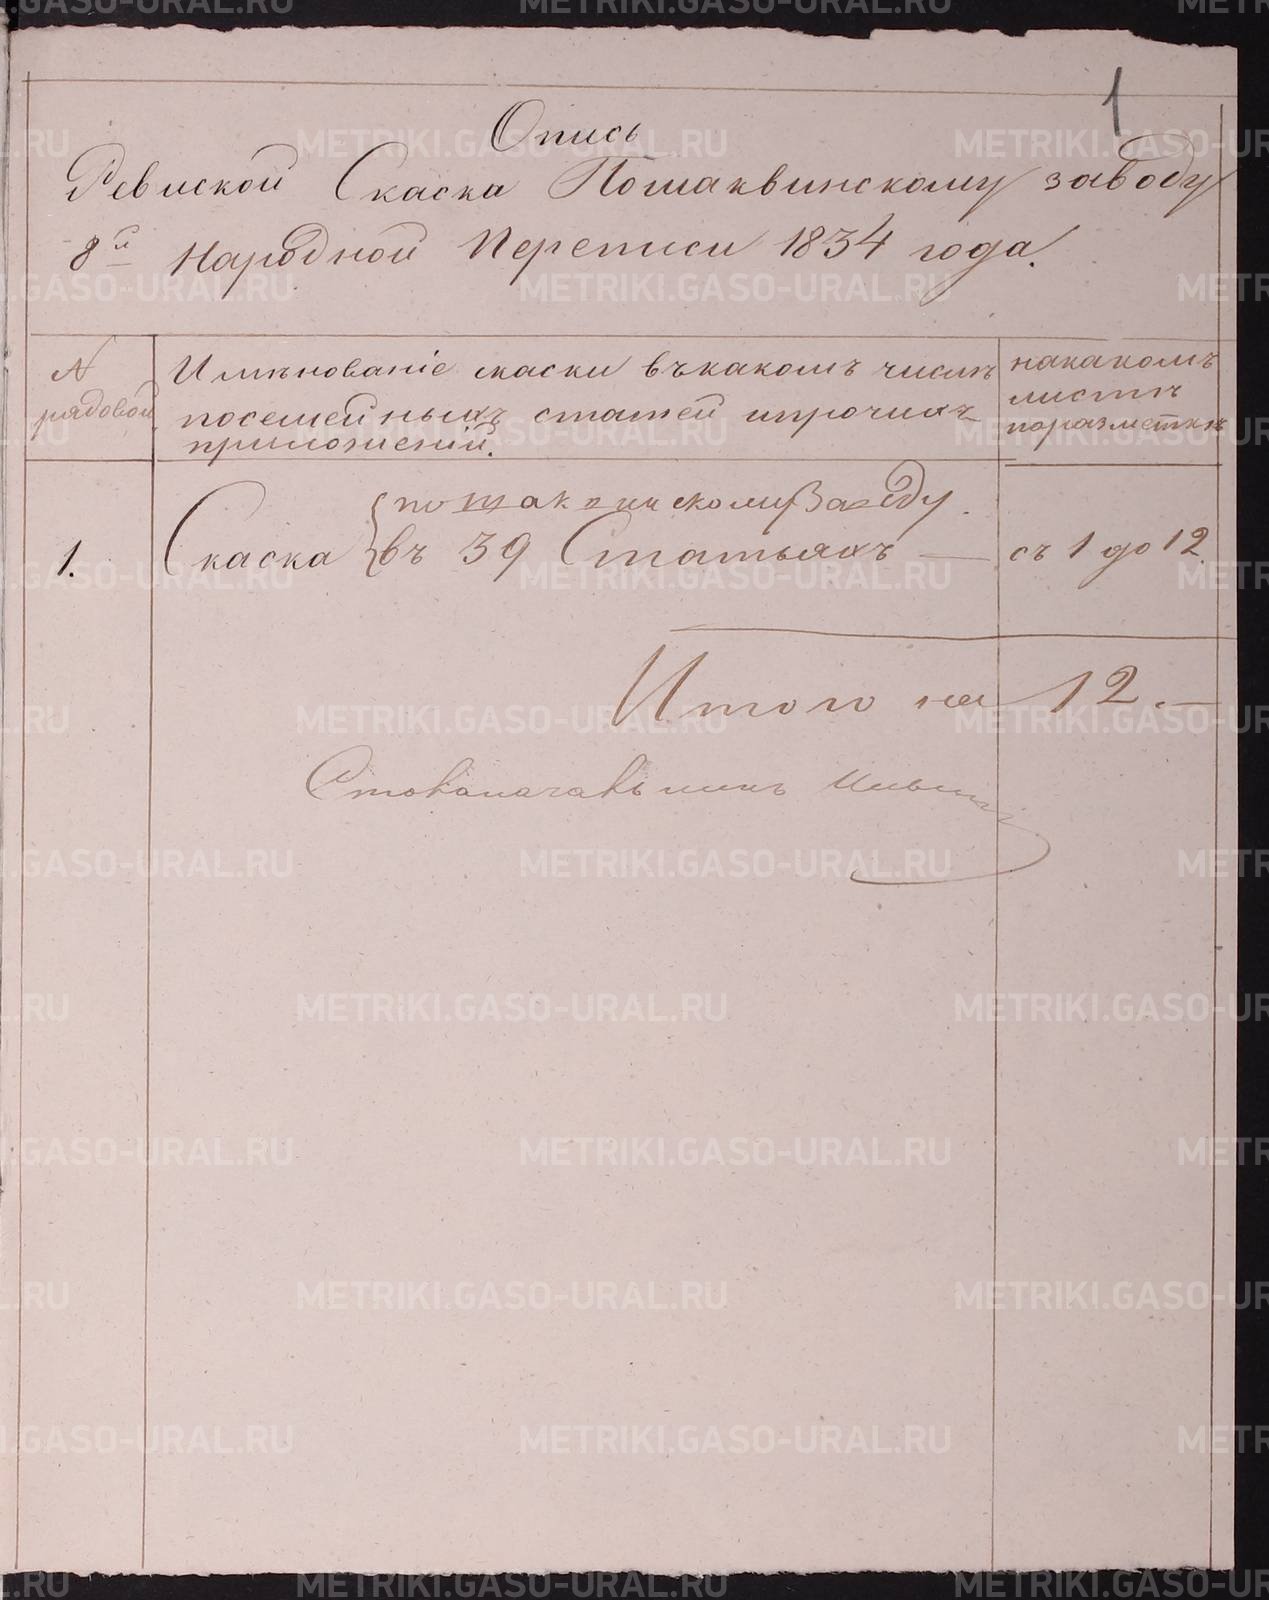 1
Опись
Ревиской Скаска Пошаквинскому заводу
8й Народной Переписи 1834 года.
N рядовой
Имѣнованіе скаски въкакомъ числѣ
посемейныхъ статей ипрочихъ
приложеній.
накакомъ
листѣ
поразмѣткѣ
пошаквинскому Заводу.
1. Скаска въ 39 Статьяхъ — съ 1 до 12
Итого на 12. —
Столоначальникъ
METRIKI.GASO-URAL.RU